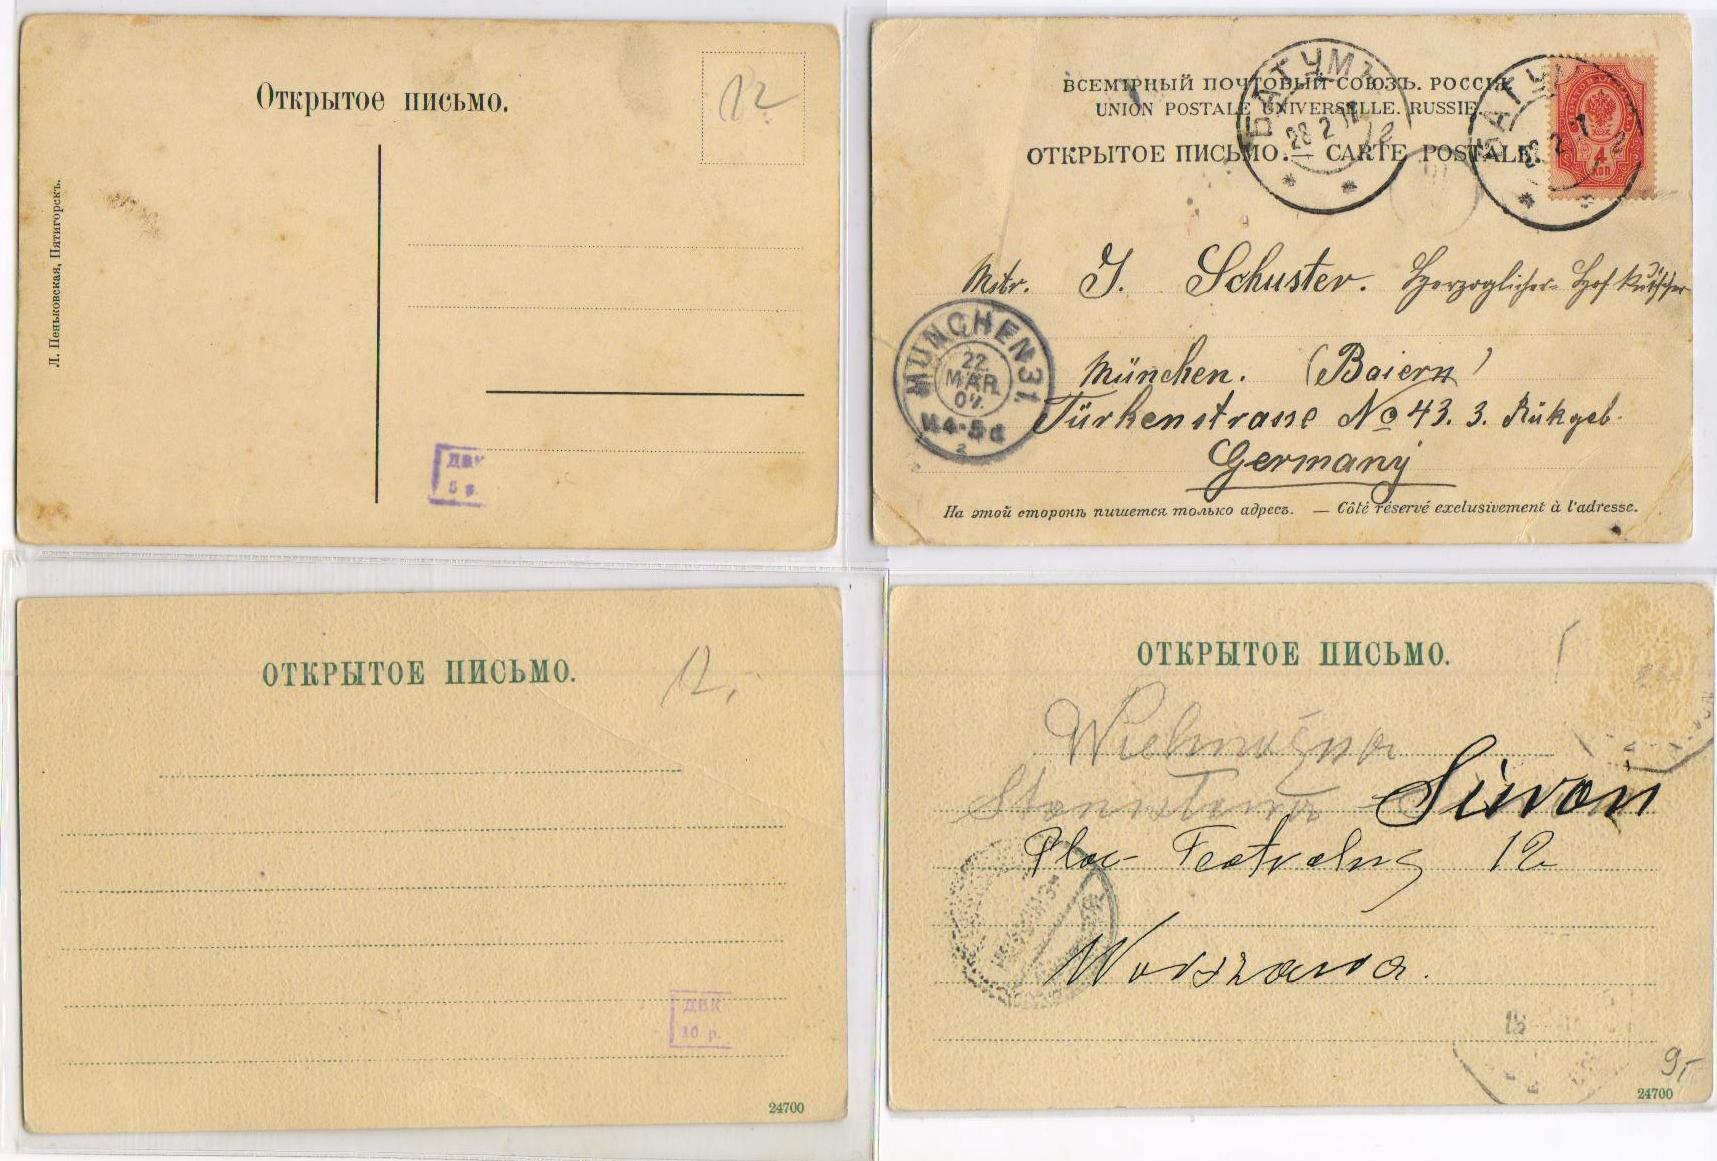 Открытое письмо.
12
Л. Пеньковская, Пятигорскъ.
ДВК
5 р.
ВСЕМІРНЫЙ ПОЧТОВЫЙ СОЮЗЪ. РОССІЯ.
UNION POSTALE UNIVERSELLE. RUSSIE.
ОТКРЫТОЕ ПИСЬМО. — CARTE POSTALE.
БАТУМЪ
28 2 07
БАТУМЪ
4
КОП
Mstr. J. Schuster. Herzoglicher Hof Kutscher
MÜNCHEN 31
22
MÄR
07
München. (Baiern)
Türkenstrasse No 43. 3. Rükgeb.
Germany
На этой сторонѣ пишется только адресъ. — Côté réservé exclusivement à l'adresse.
ОТКРЫТОЕ ПИСЬМО.
12,-
ДВК
10 р.
24700
ОТКРЫТОЕ ПИСЬМО.
Wielmożna
Stanisława Simon
Plac Teatralny 12
Warszawa.
9,-
24700